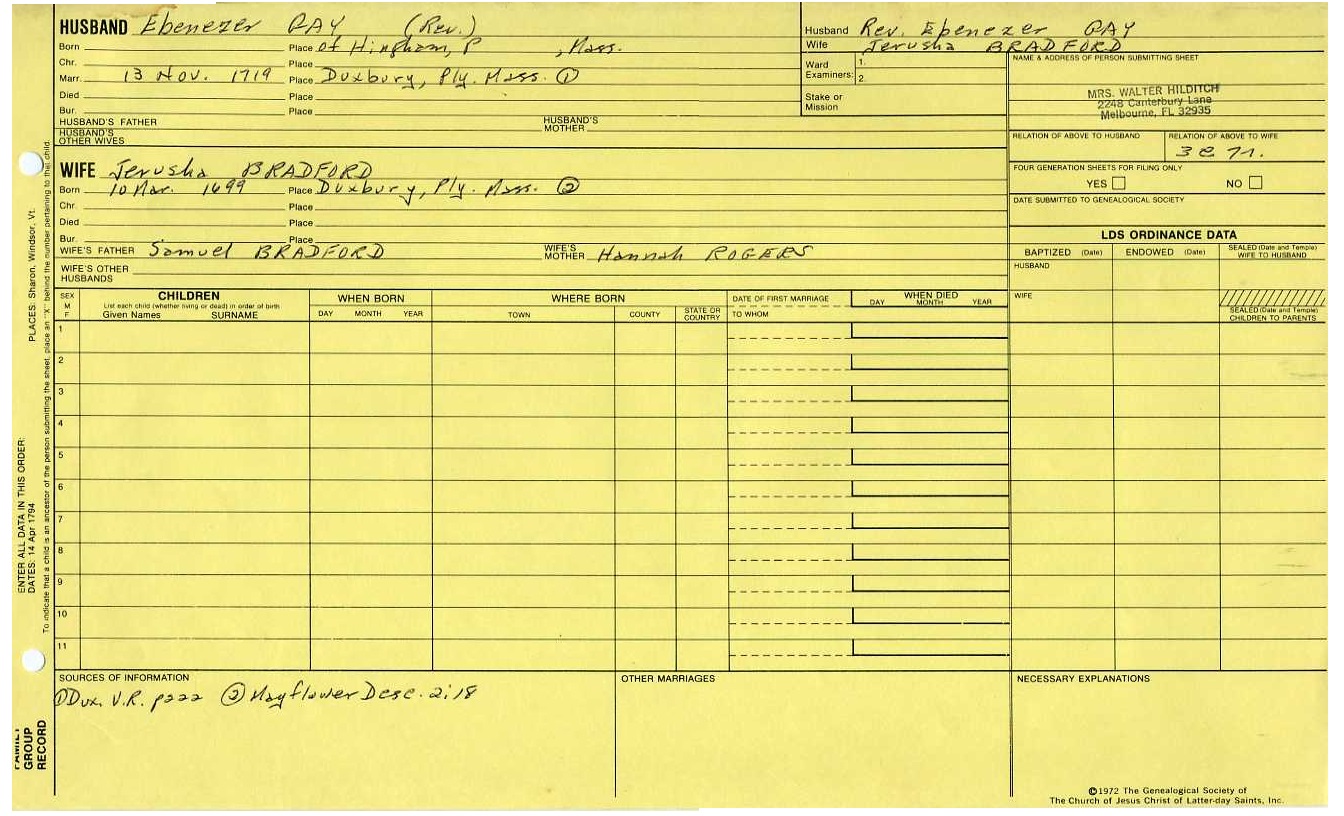 HUSBAND Ebenezer GAY (Rev.)
Born Place of Hingham, P , Mass.
Chr. Place
Marr. 13 Nov. 1719 Place Duxbury, Ply. Mass. ①
Died Place
Bur. Place
HUSBAND'S FATHER HUSBAND'S MOTHER
HUSBAND'S OTHER WIVES
WIFE Jerusha BRADFORD
Born 10 Mar. 1699 Place Duxbury, Ply. Mass. ②
Chr. Place
Died Place
Bur. Place
WIFE'S FATHER Samuel BRADFORD WIFE'S MOTHER Hannah ROGERS
WIFE'S OTHER HUSBANDS
Husband Rev. Ebenezer GAY
Wife Jerusha BRADFORD
Ward Examiners: 1. 2.
Stake or Mission
NAME & ADDRESS OF PERSON SUBMITTING SHEET
MRS. WALTER HILDITCH
2248 Canterbury Lane
Melbourne, FL 32935
RELATION OF ABOVE TO HUSBAND RELATION OF ABOVE TO WIFE
FOUR GENERATION SHEETS FOR FILING ONLY
YES NO
DATE SUBMITTED TO GENEALOGICAL SOCIETY
LDS ORDINANCE DATA
BAPTIZED (Date) ENDOWED (Date) SEALED (Date and Temple) WIFE TO HUSBAND
HUSBAND
WIFE
SEALED (Date and Temple) CHILDREN TO PARENTS
SEX M F
CHILDREN
List each child (whether living or dead) in order of birth
Given Names SURNAME
WHEN BORN
DAY MONTH YEAR
WHERE BORN
TOWN COUNTY STATE OR COUNTRY
DATE OF FIRST MARRIAGE
TO WHOM
WHEN DIED
DAY MONTH YEAR
1
2
3
4
5
6
7
8
9
10
11
SOURCES OF INFORMATION
①Dux. V.R. p222 ②Mayflower Desc. 2:18
OTHER MARRIAGES
NECESSARY EXPLANATIONS
©1972 The Genealogical Society of
The Church of Jesus Christ of Latter-day Saints, Inc.
PLACES: Sharon, Windsor, Vt.
ENTER ALL DATA IN THIS ORDER:
DATES: 14 Apr 1794
To indicate that a child is an ancestor of the person submitting the sheet, place an "X" behind the number pertaining to that child.
FAMILY
GROUP
RECORD